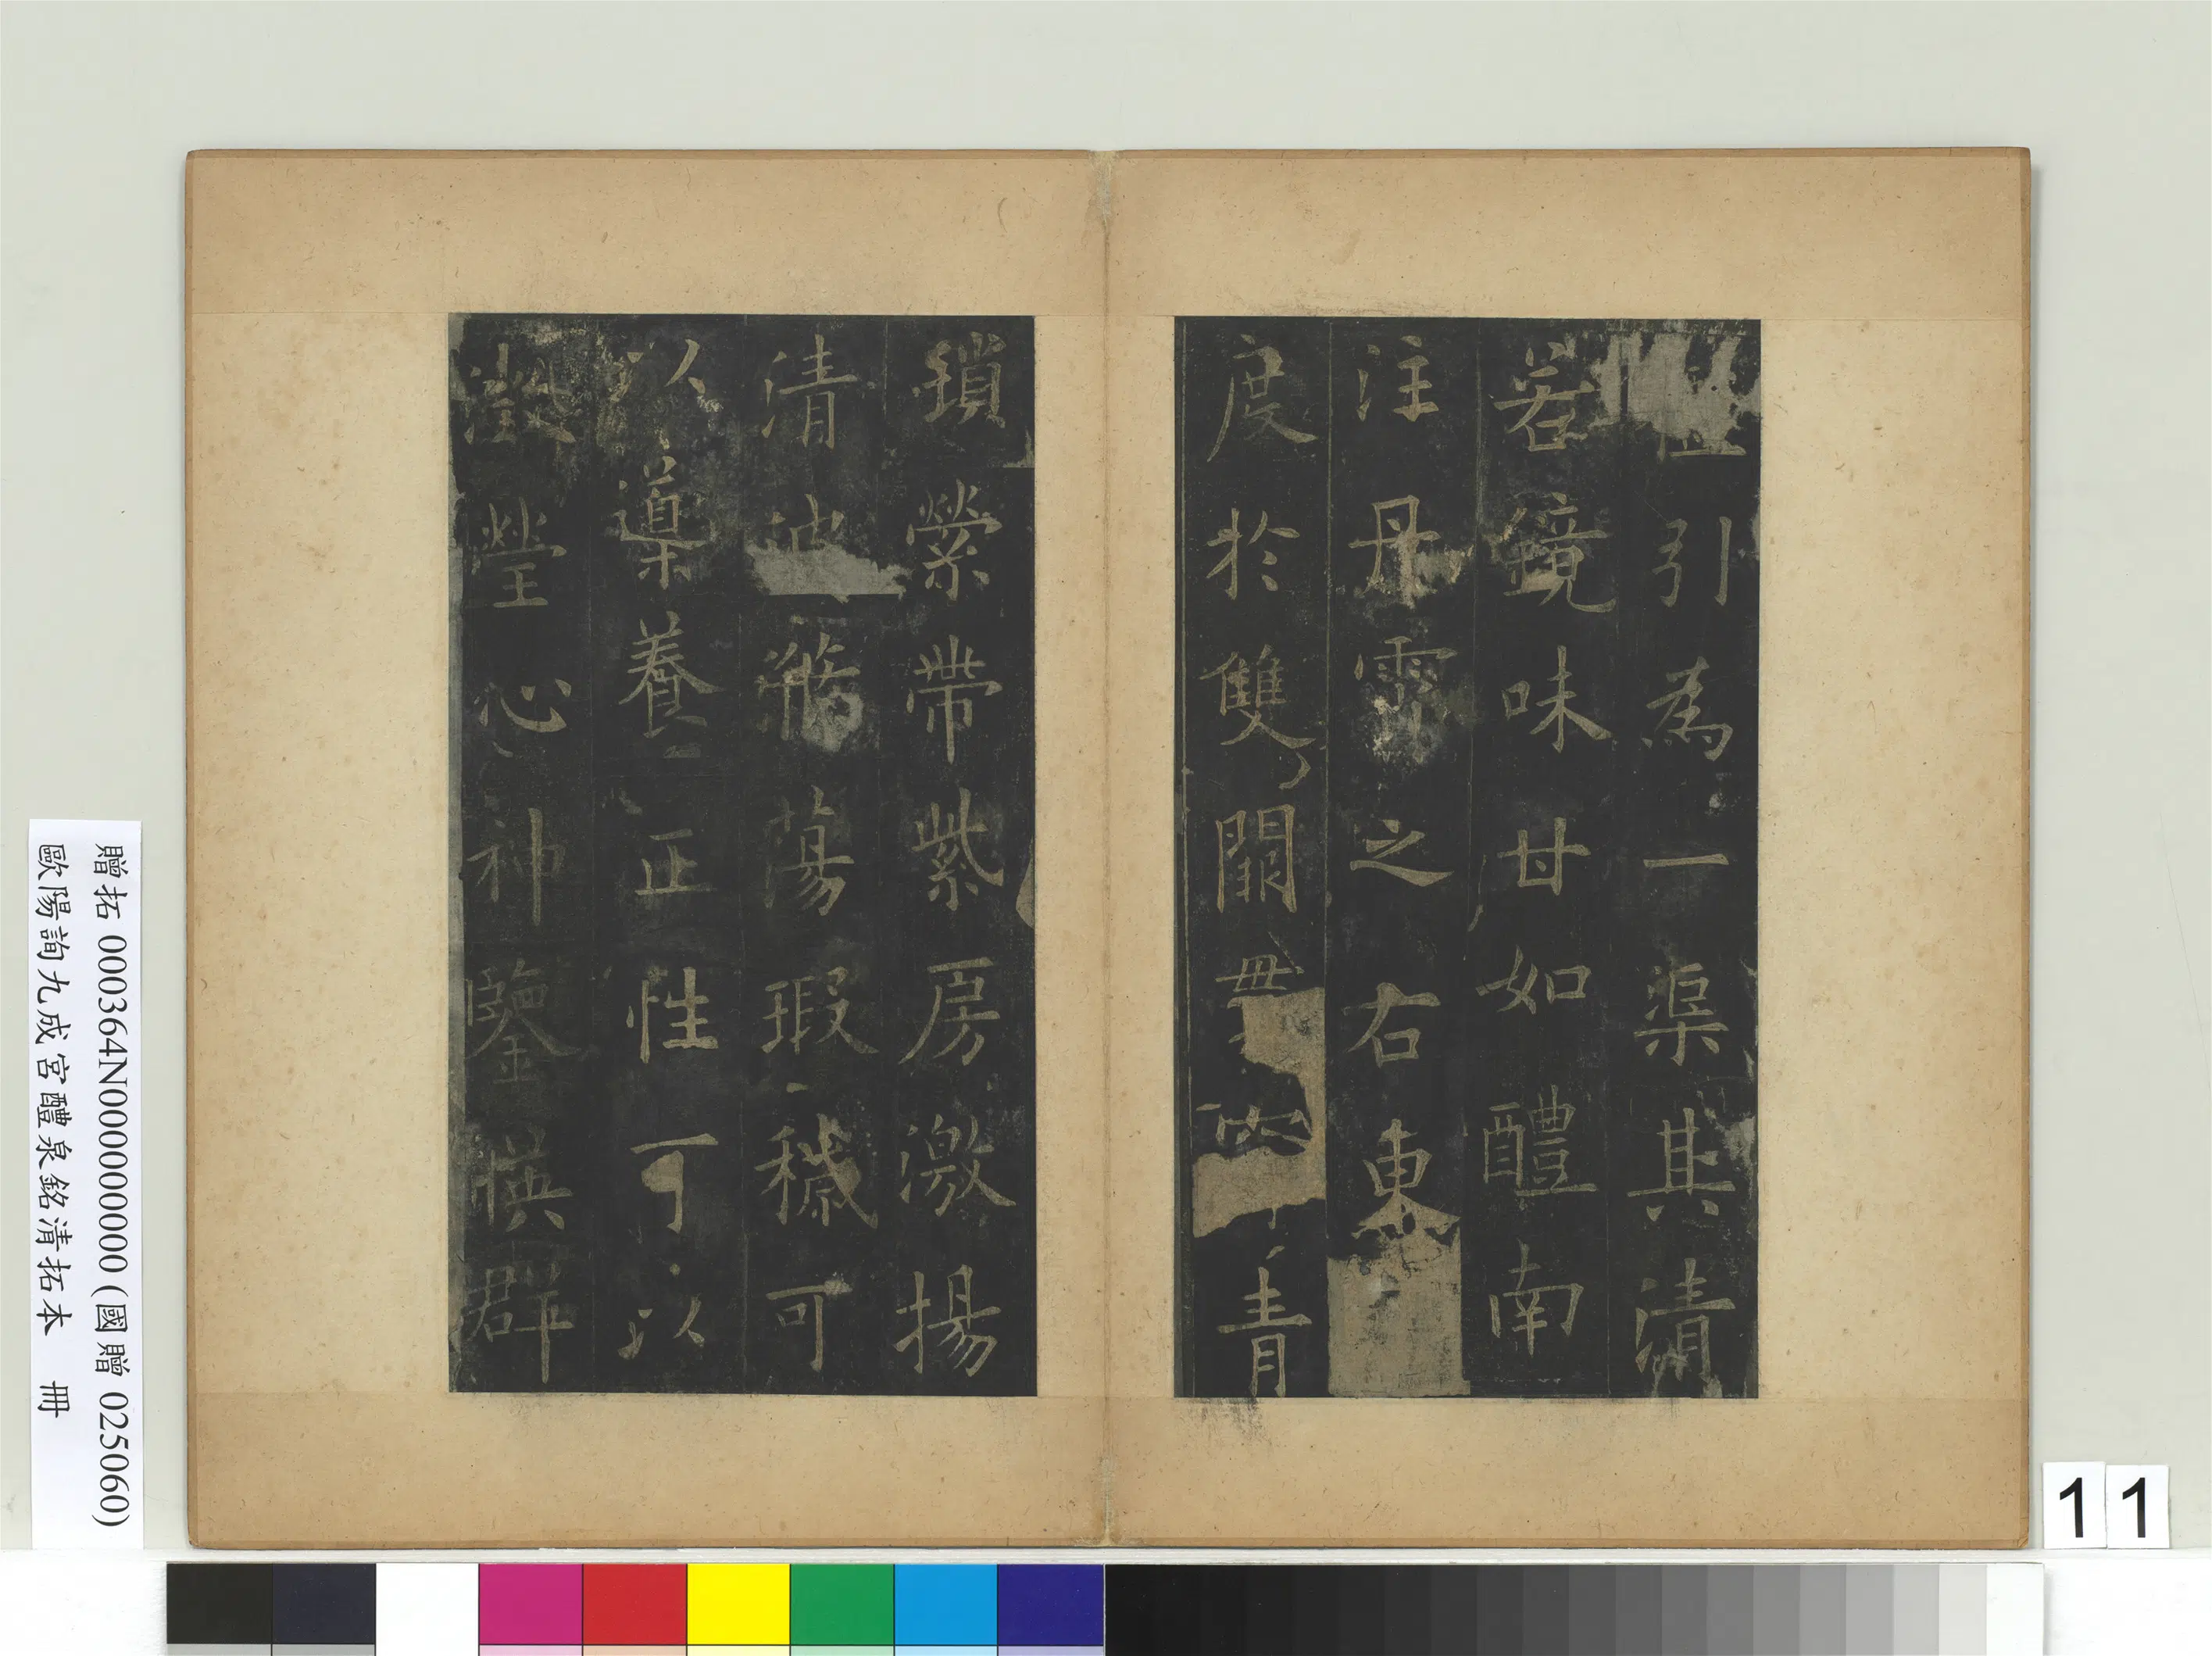 引為一渠其清
若鏡味甘如醴南
注丹霄之右東
度於雙闕貫青
鎖縈帶紫房激揚
清波滌蕩瑕穢可
以導養正性可以
澂瑩心神鑒暎群
贈拓 000364N000000000 (國贈 025060)
歐陽詢九成宮醴泉銘清拓本 冊
11